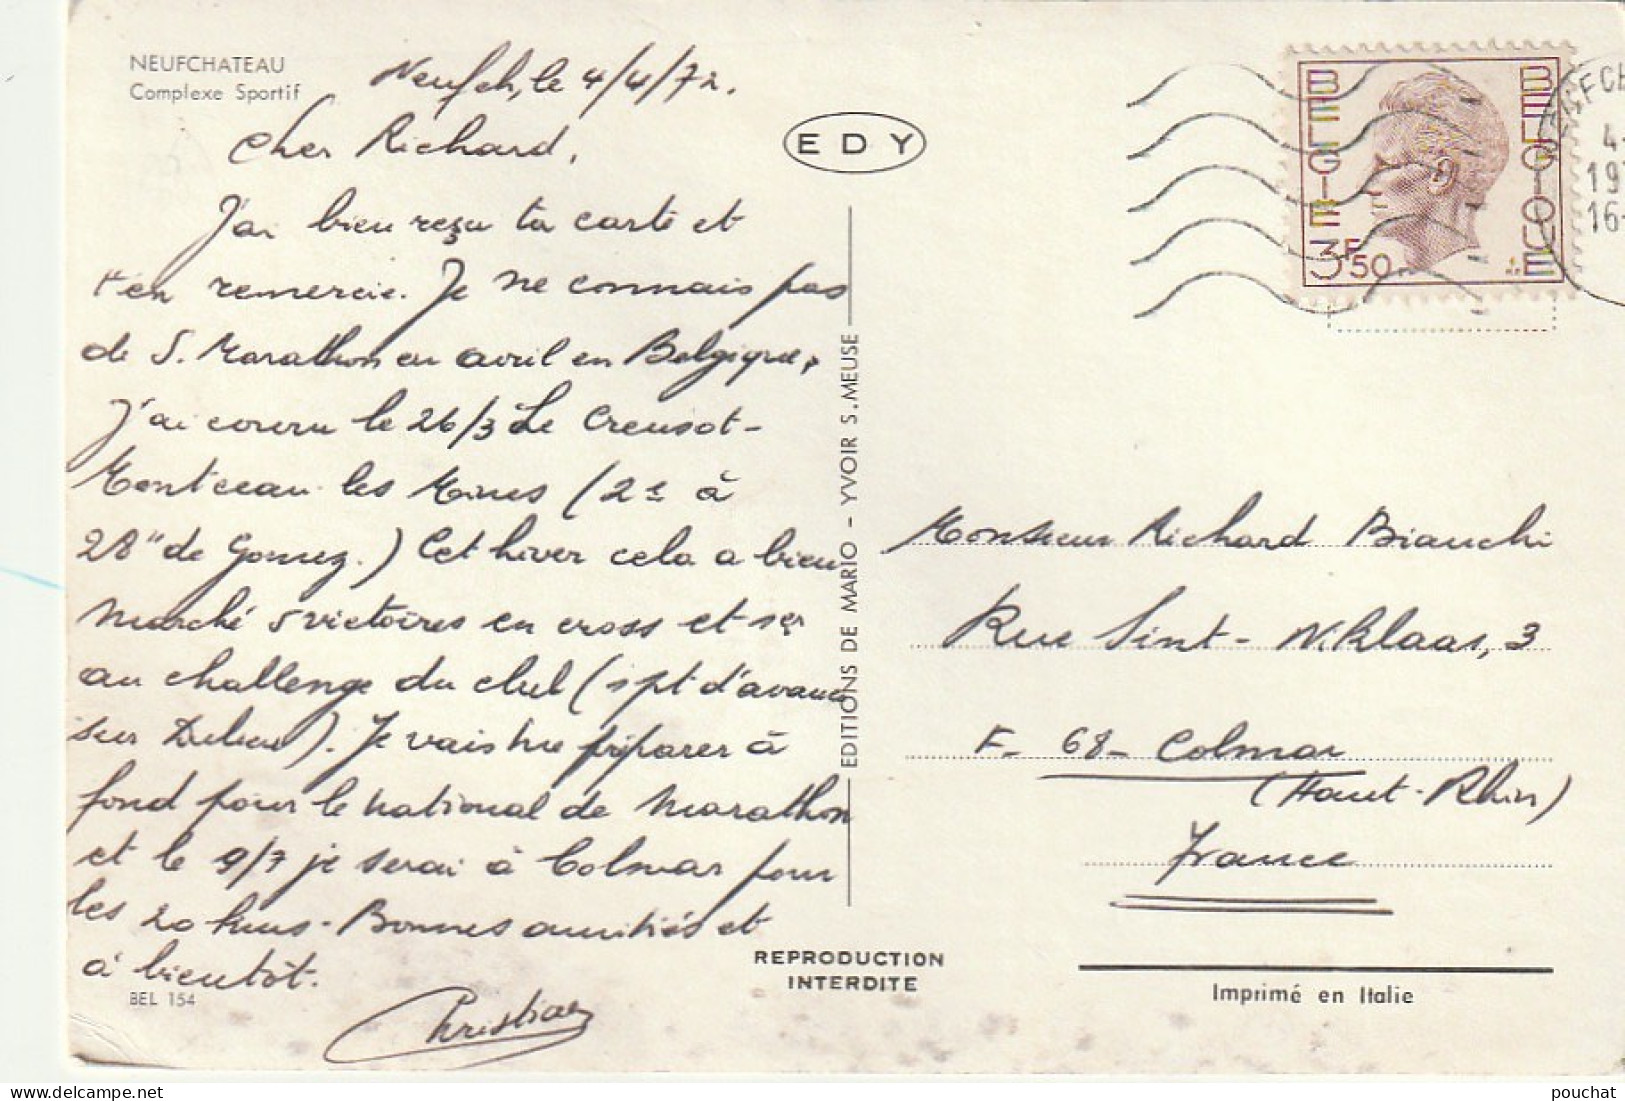 NEUFCHATEAU
Complexe Sportif
Neufch, le 4/4/72.
Cher Richard,
J'ai bien reçu ta carte et
t'en remercie. Je ne connais pas
de S. Marathon en avril en Belgique,
J'ai couru le 26/3 Le Creusot-
Montceau les Mines (2e à
28" de Gomez.) Cet hiver cela a bien
marché 5 victoires en cross et 1er
au challenge du club (1 pt d'avance
sur). Je vais me préparer à
fond pour le national de marathon
et le 9/7 je serai à Colmar pour
les 20 kms - Bonnes amitiés et
à bientôt.
Christian
BEL 154
EDY
EDITIONS DE MARIO - YVOIR S.MEUSE
REPRODUCTION
INTERDITE
BELGIE BELGIQUE
3F50
4-
197
16-
Monsieur Richard Bianchi
Rue Sint-Niklaas, 3
F- 68- Colmar
(Haut-Rhin)
France
Imprimé en Italie
delcampe.net
pouchat